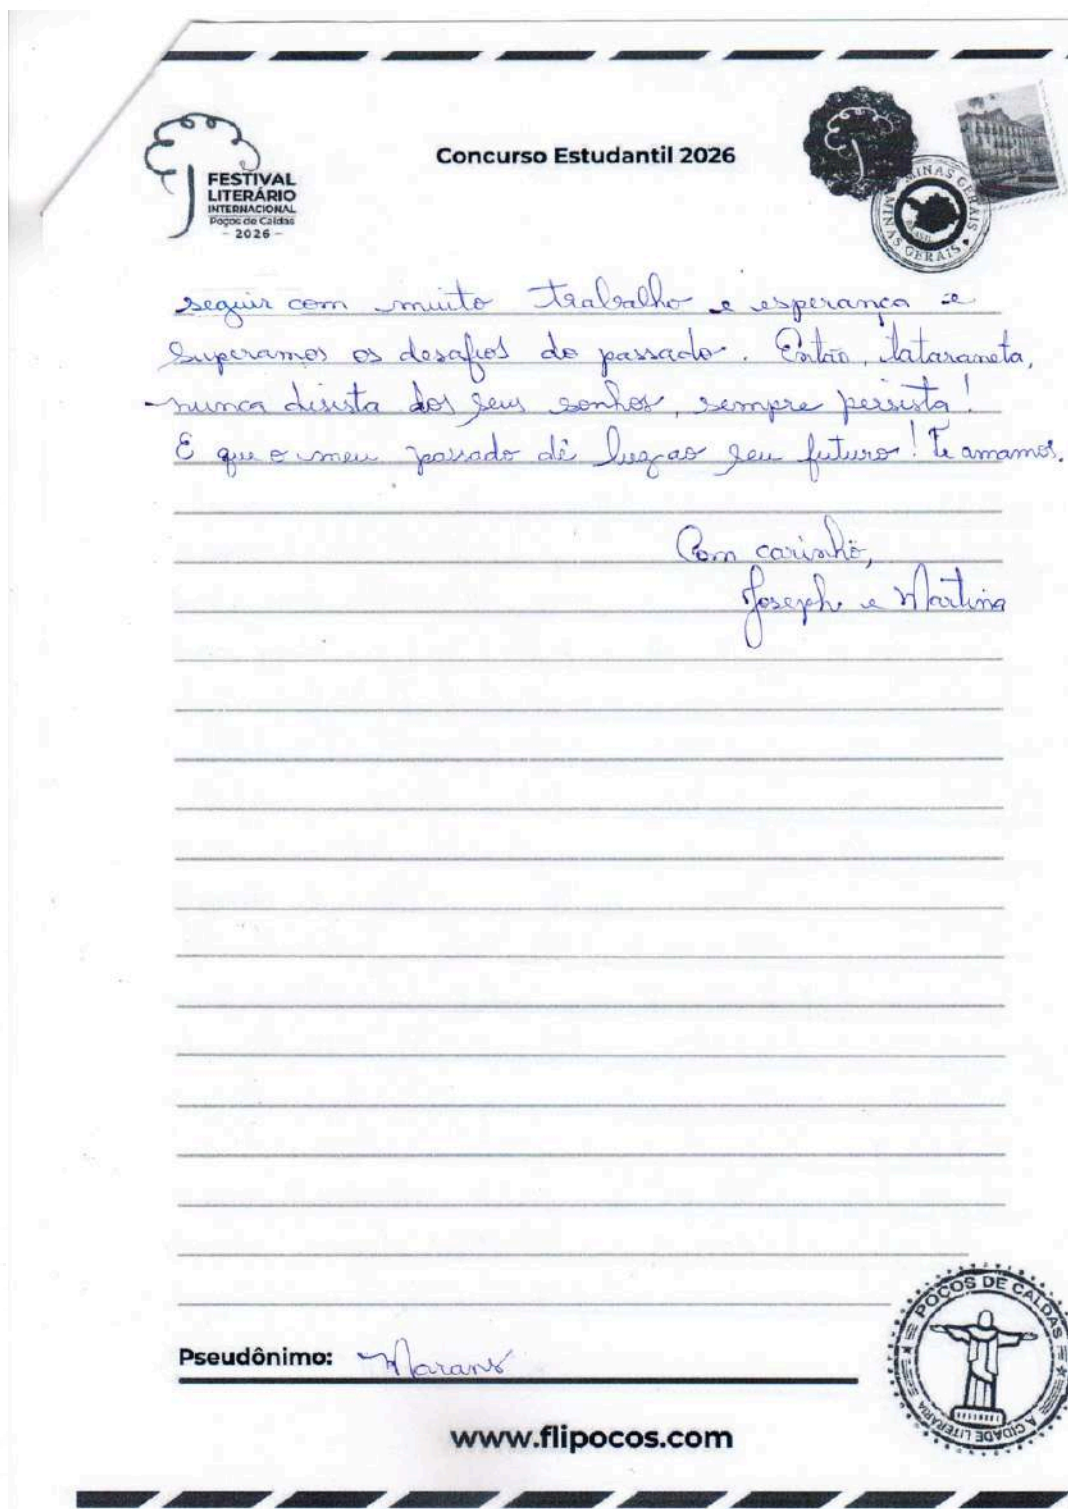 FESTIVAL
LITERÁRIO
INTERNACIONAL
Poços de Caldas
- 2026 -
Concurso Estudantil 2026
MINAS GERAIS
MINAS GERAIS
BRASIL
seguir com muito trabalho e esperança e
superamos os desafios do passado. Então, tataraneta,
nunca disista dos seus sonhos, sempre persista!
E que o meu passado dê lugar ao seu futuro! Te amamos.
Com carinho,
Joseph e Martina
Pseudônimo:
POÇOS DE CALDAS
A CIDADE LITERÁRIA
www.flipocos.com